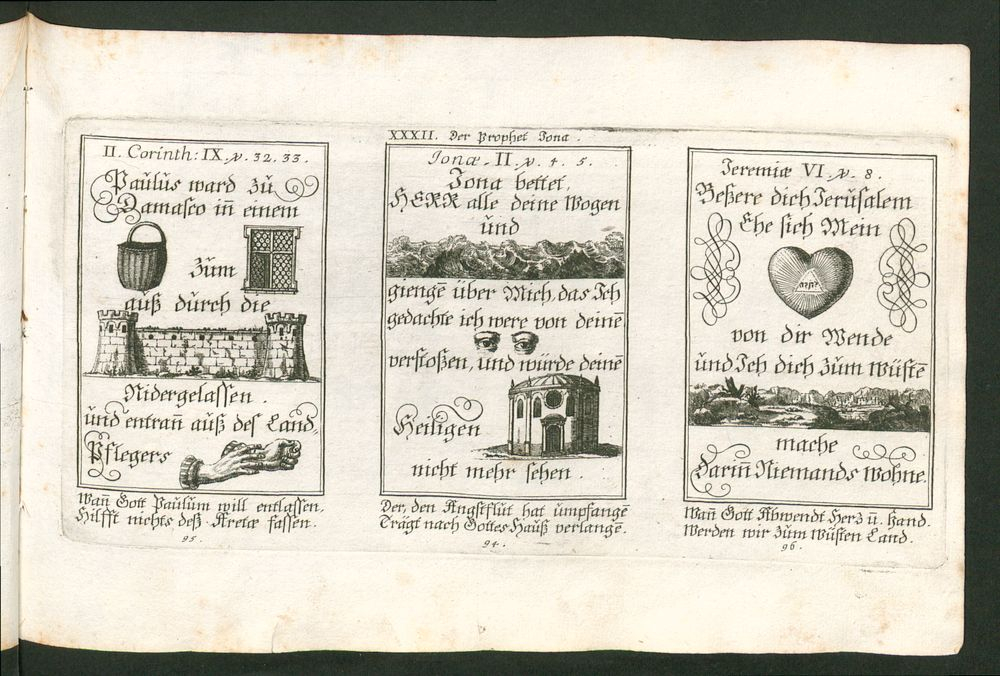 II. Corinth: IX. v. 32. 33.
Paulus ward zu
Damasco in̄ einem
zum
auß durch die
Nidergelassen.
und entran̄ auß des Land,
Pflegers
Wan̄ Gott Paulum will entlassen,
Hilfft nichts deß Aretæ fassen.
95.
XXXII. Der Prophet Jona.
Jonæ. II. v. 4. 5.
Jona bettet,
HERR alle deine Wogen
und
giengē über Mich, das Ich
gedachte ich were von deinē
verstoßen, und würde deinē
Heiligen
nicht mehr sehen.
Der, den Angstflut hat umpfangē
Trägt nach Gottes Hauß verlangē.
94.
Jeremiæ VI. v. 8.
Beßere dich Jerusalem
Ehe sich Mein
von dir Wende
und Ich dich zum wüstē
mache
Darin̄ Niemands wohne.
Wan̄ Gott Abwendt Herz ū. Hand.
Werden wir zum wüsten Land.
96.